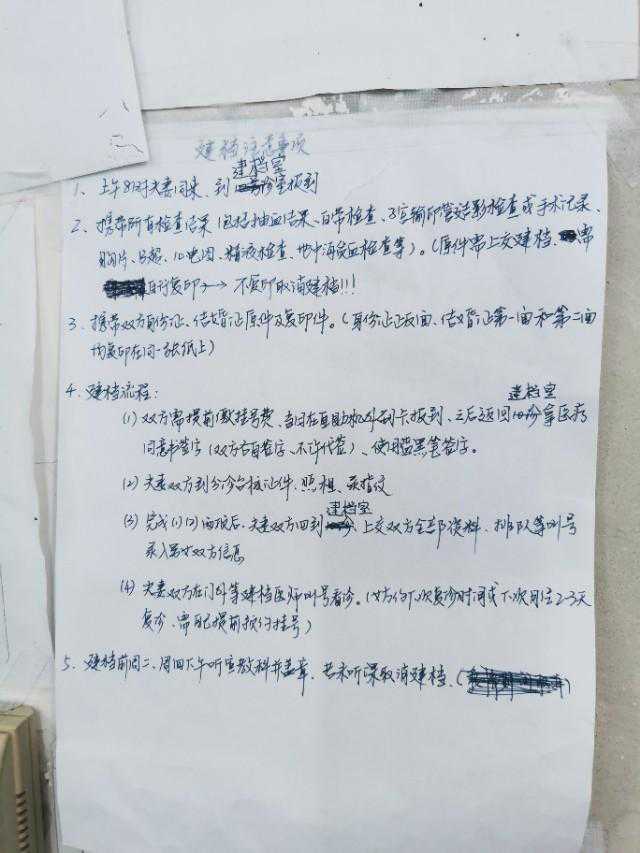 建档注意事项
建档室
1、上午8时夫妻同来、到诊室报到
2、携带所有检查结果(包括抽血结果、白带检查、子宫输卵管造影检查或手术记录、
胸片、B超、心电图、精液检查、地中海贫血检查等)。(原件需上交建档、需
自行复印→不复印取消建档!!!
3、携带双方身份证、结婚证原件及复印件。(身份证正反面、结婚证第一面和第二面
均复印在同一张纸上)
4、建档流程:
建档室
(1) 双方需提前缴挂号费、当日在自助机外刷卡报到、之后返回诊拿医疗
同意书签字(双方右面签字、不许代签)、使用蓝黑笔签字。
(2) 夫妻双方到分诊台核证件、照相、录指纹
建档室
(3) 完成(1)(2)两项后、夫妻双方回到上交双方全部资料、排队等叫号
录入男女双方信息
(4) 夫妻双方在门外等建档医师叫号看诊。(女方约下次复诊时间或下次月经2-3天
复诊、需自己提前预约挂号)
5、建档前周二、周四下午听宣教科并盖章、若未听课取消建档、